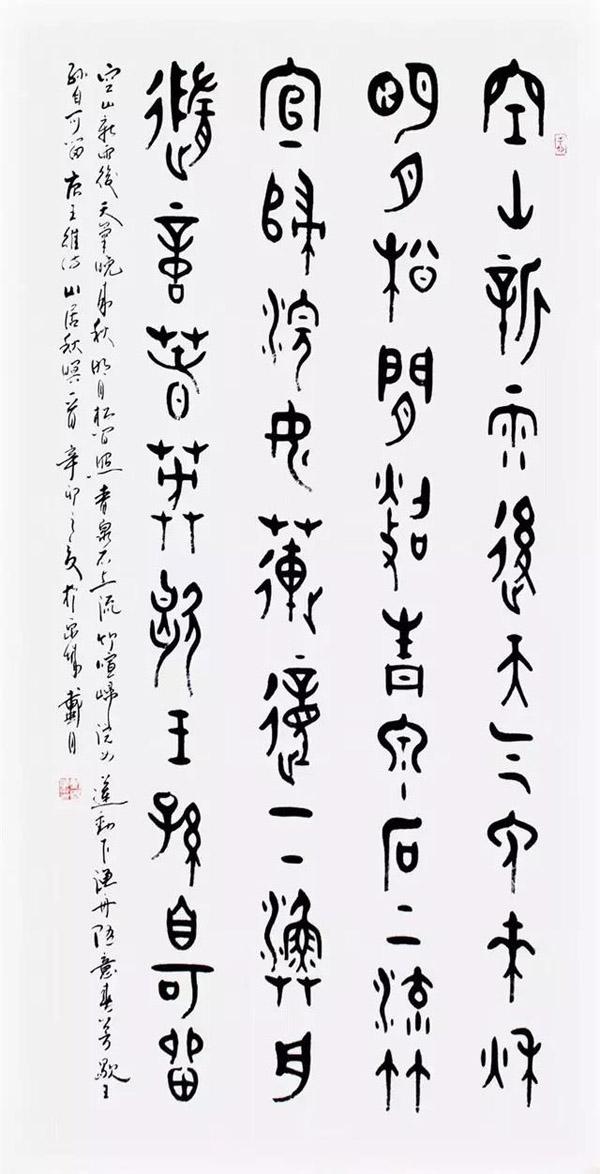 空山新雨後天气晚來秋
明月松間照清泉石上流竹
喧歸浣女蓮動下漁舟
隨意春芳歇王孫自可留
空山新雨後天氣晚來秋明月松間照清泉石上流竹喧歸浣女蓮動下漁舟隨意春芳歇王
孫自可留右王維詩山居秋暝一首辛卯之夏於京戴月